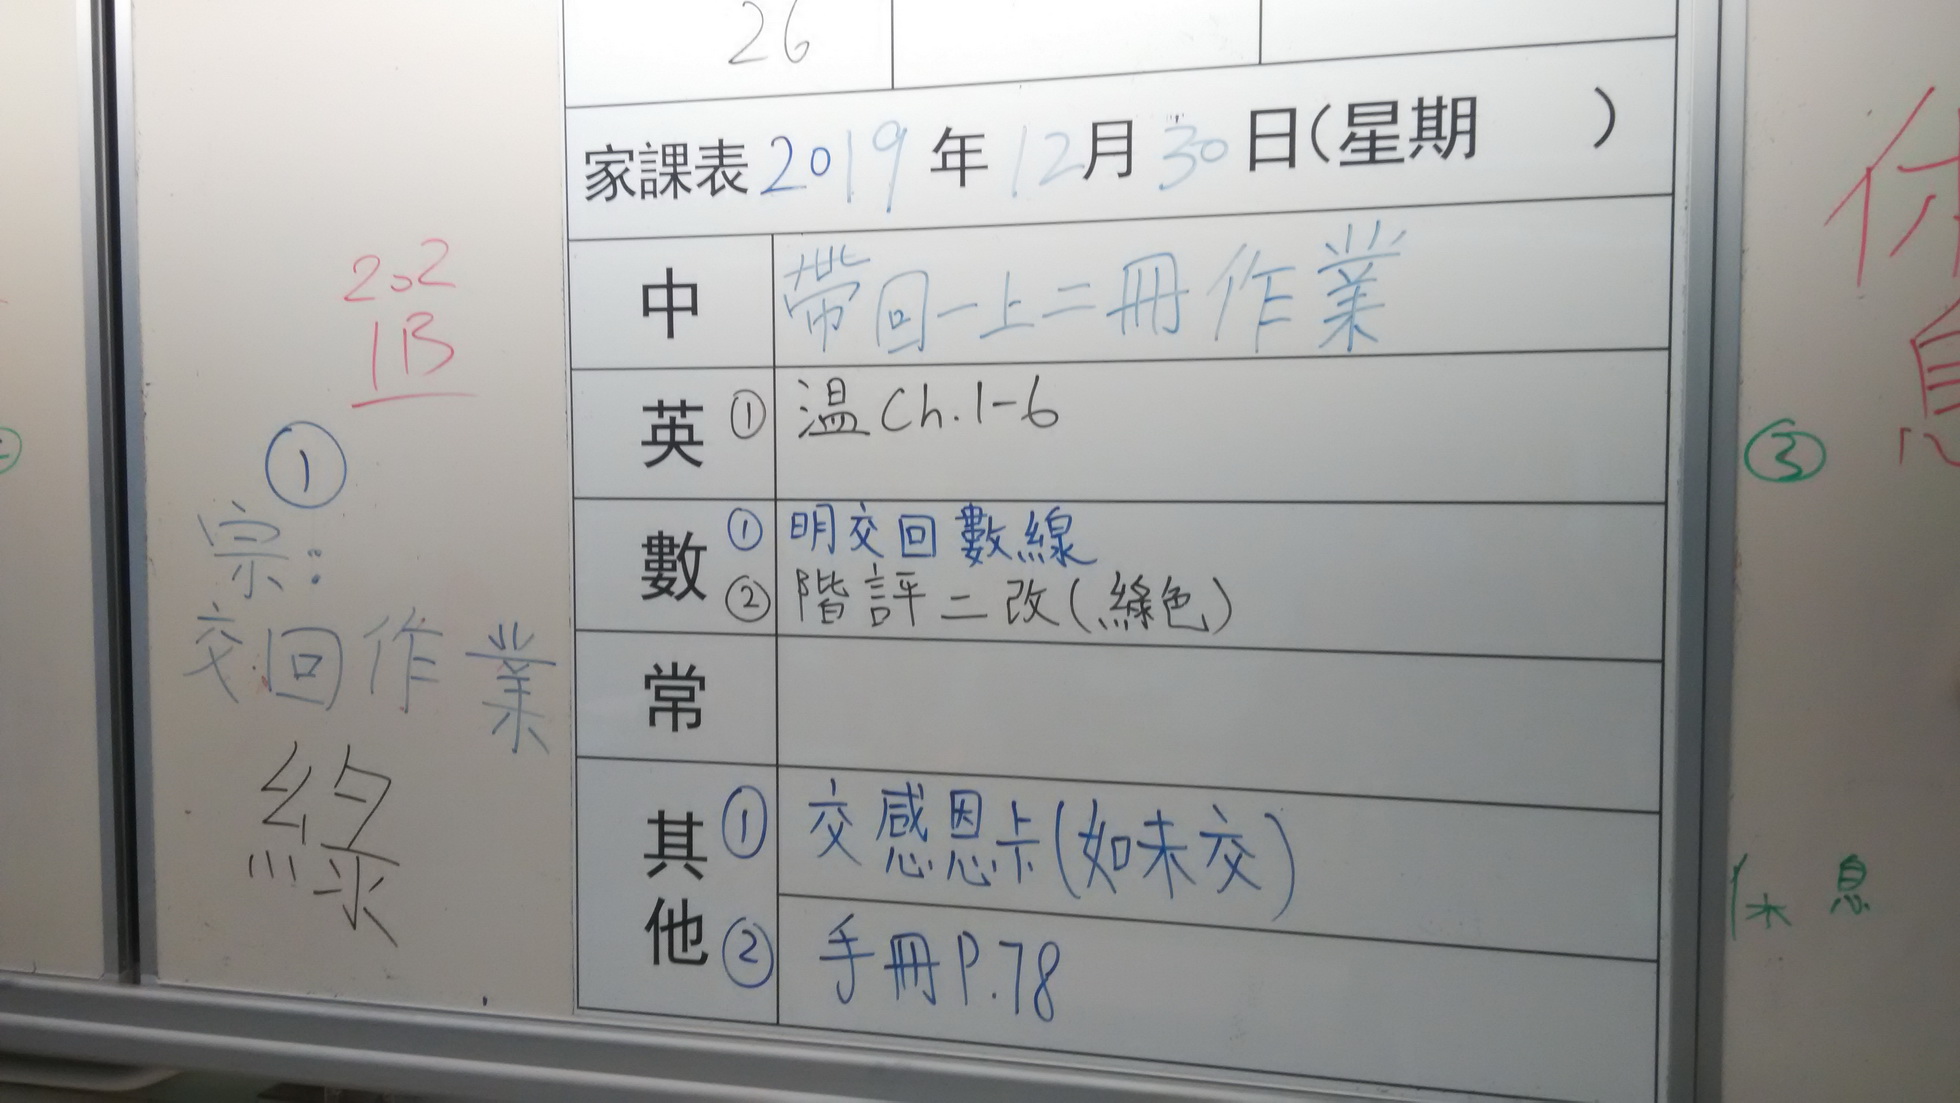 26
家課表 2019 年 12 月 30 日(星期 )
中 帶回一上二冊作業
英 ① 溫 Ch.1-6
數 ① 明交回數線
② 階評二改(綠色)
常
其他 ① 交感恩卡(如未交)
② 手冊 P.78
202
1B
①
宗:
交回作業
③
休息
休息